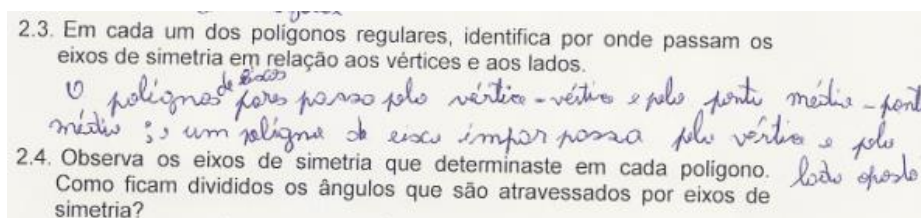 2.3. Em cada um dos polígonos regulares, identifica por onde passam os
eixos de simetria em relação aos vértices e aos lados.
de eixos
O polignos pares passo pelo vértice - vértice e pelo ponto médio - pont
médio ; o um poligno de eixco impar passa pelo vértice e pelo
lado oposto
2.4. Observa os eixos de simetria que determinaste em cada polígono.
Como ficam divididos os ângulos que são atravessados por eixos de
simetria?